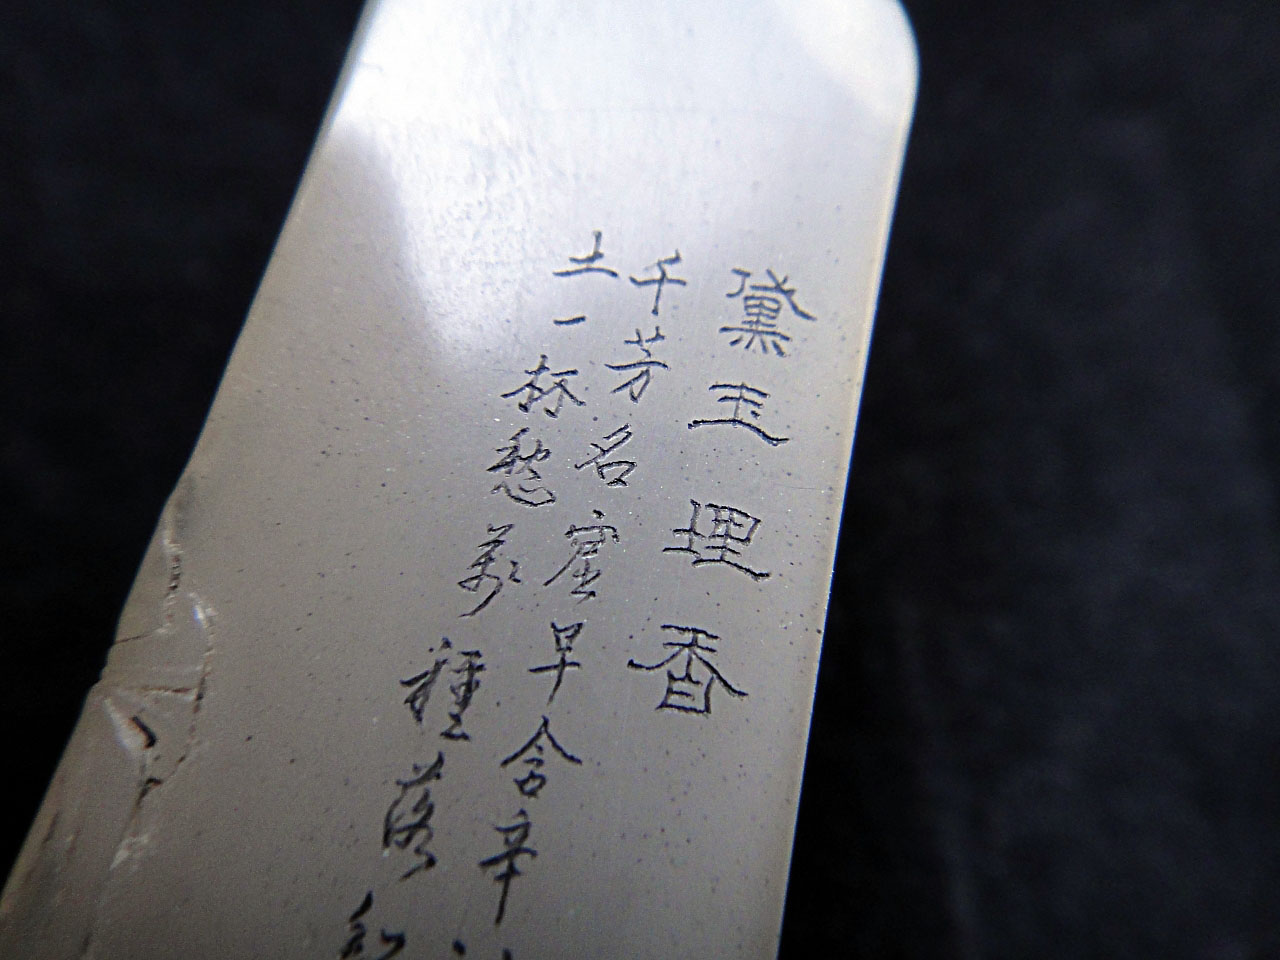 黛玉埋香
千芳名窟早含辛
土一杯愁萬種落紅